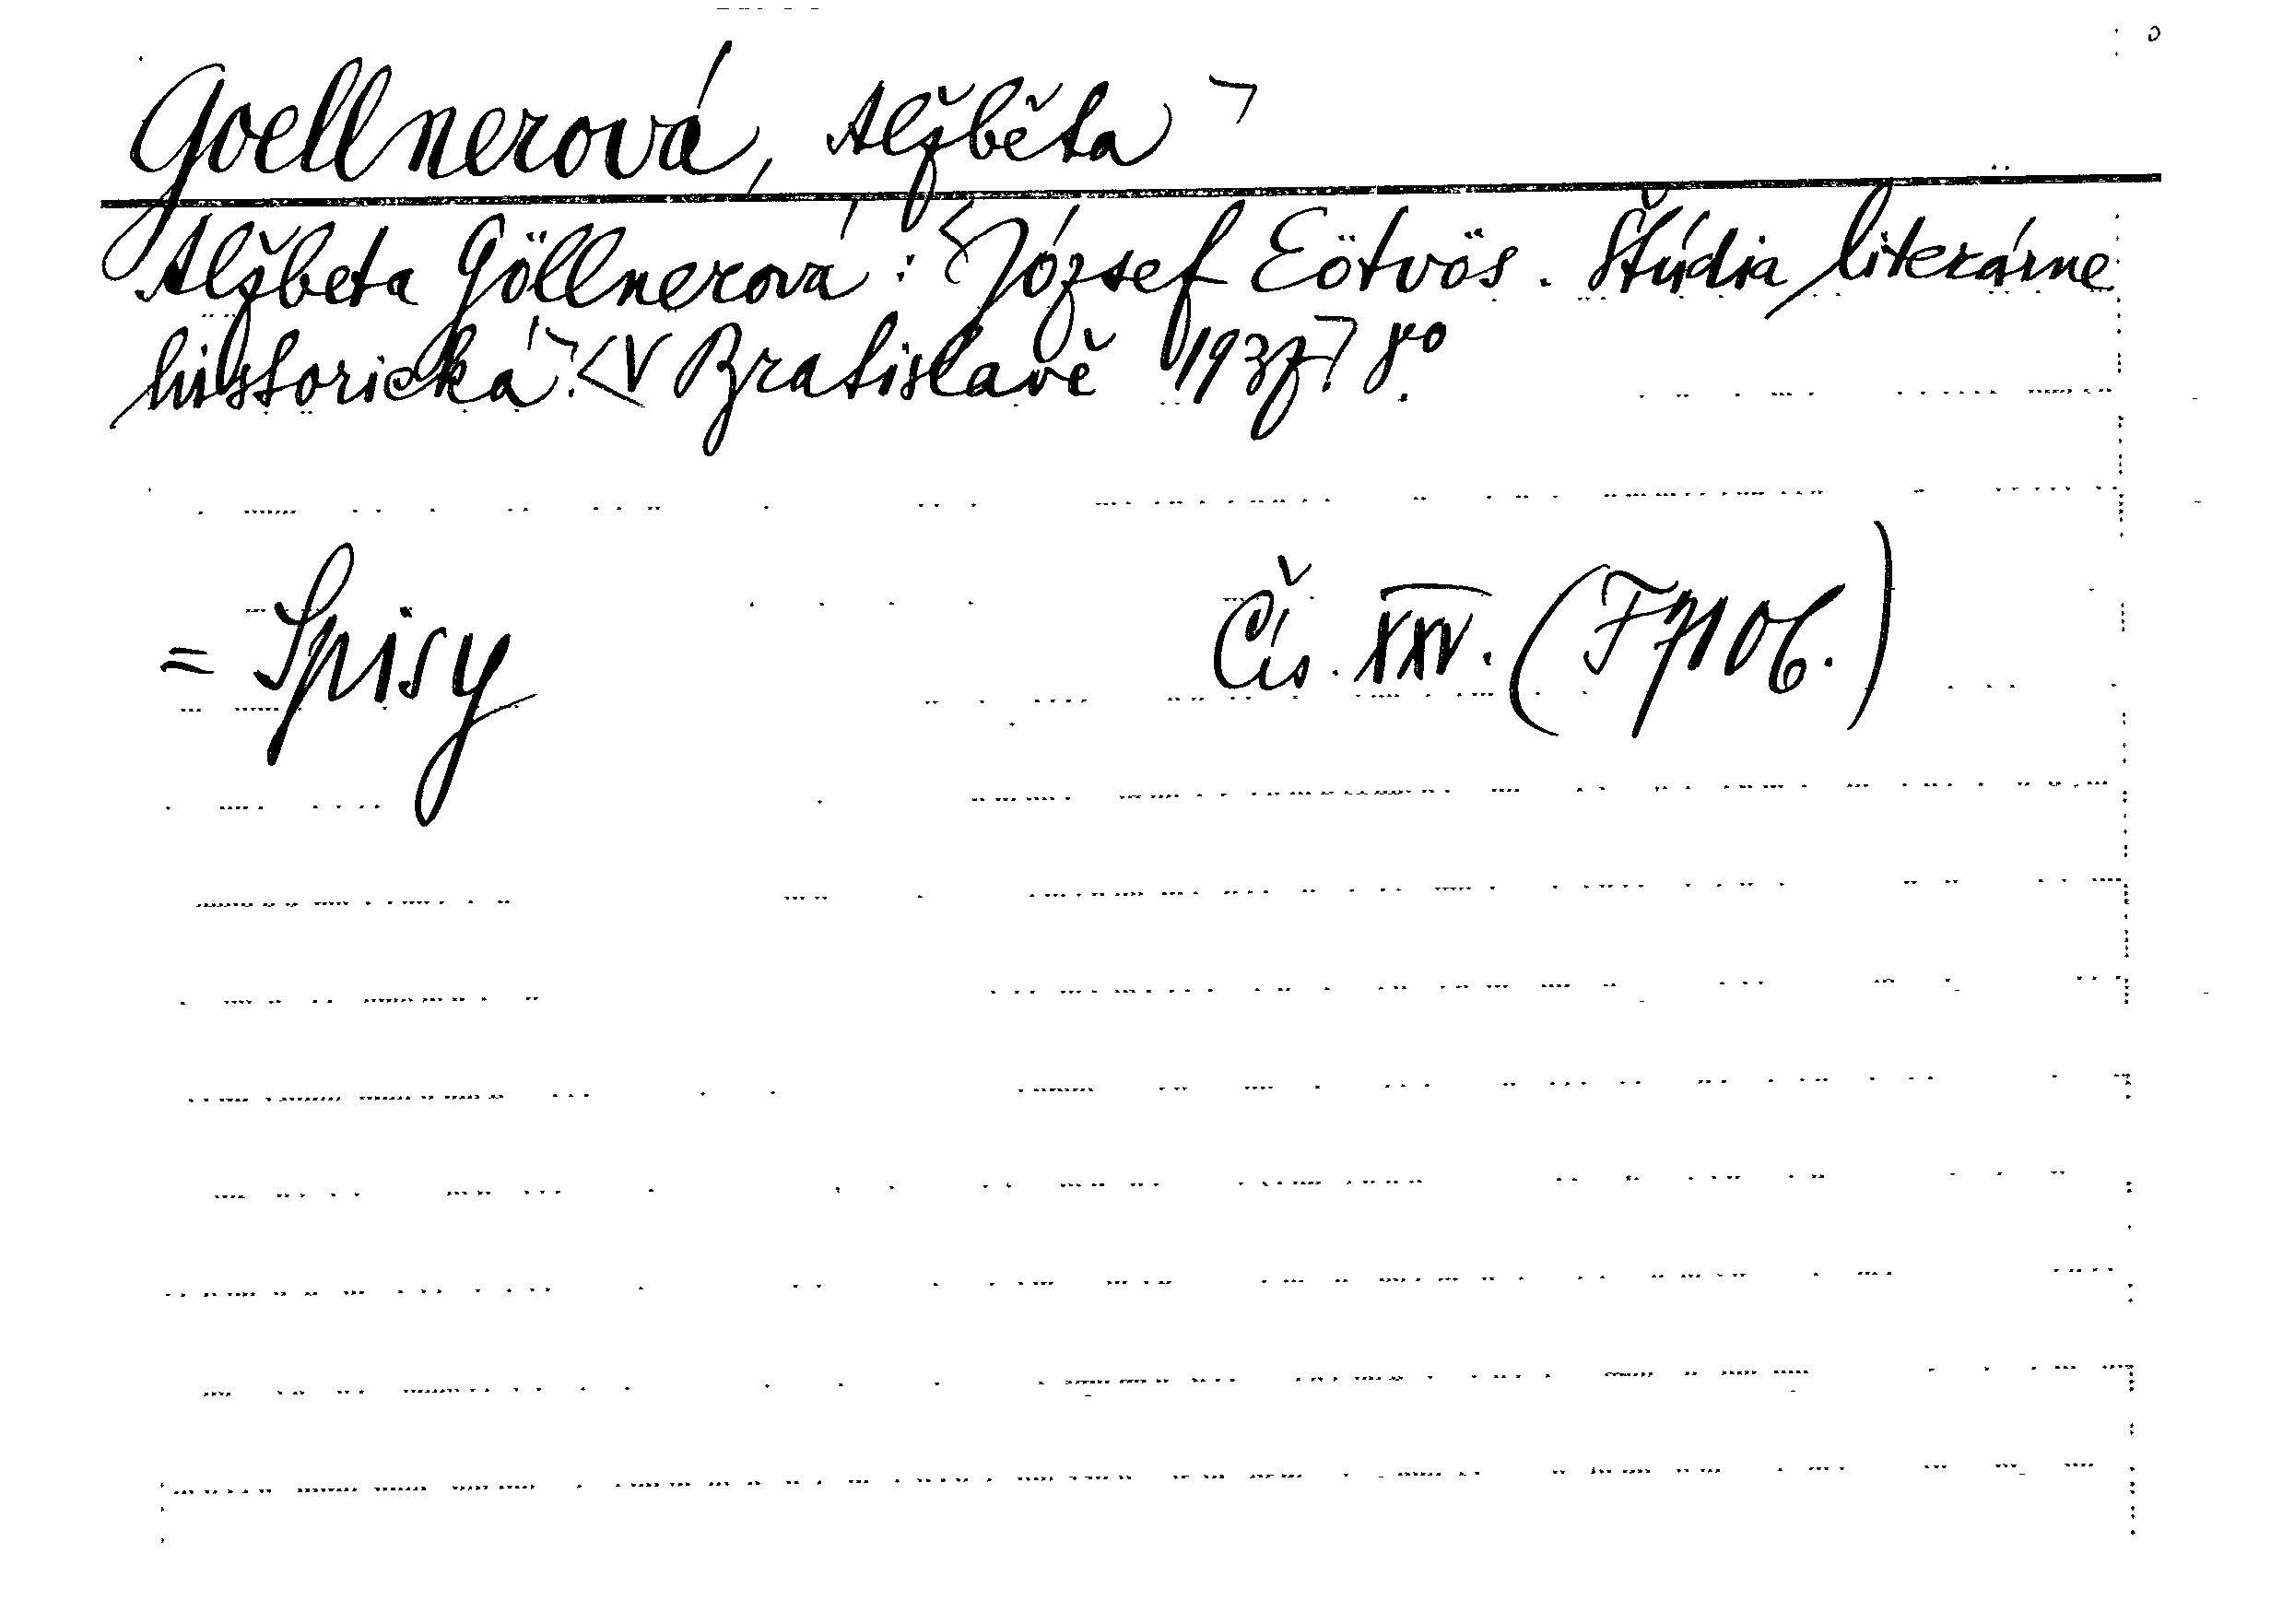 Goellnerová, Alžběta ¬
Alžbeta Göllnerová: <József Eötvös. Štúdia literárne
historická ¬. <V Bratislavě 1937¬. 8°.
= Spisy Čís. XXV. (F 71 06.)